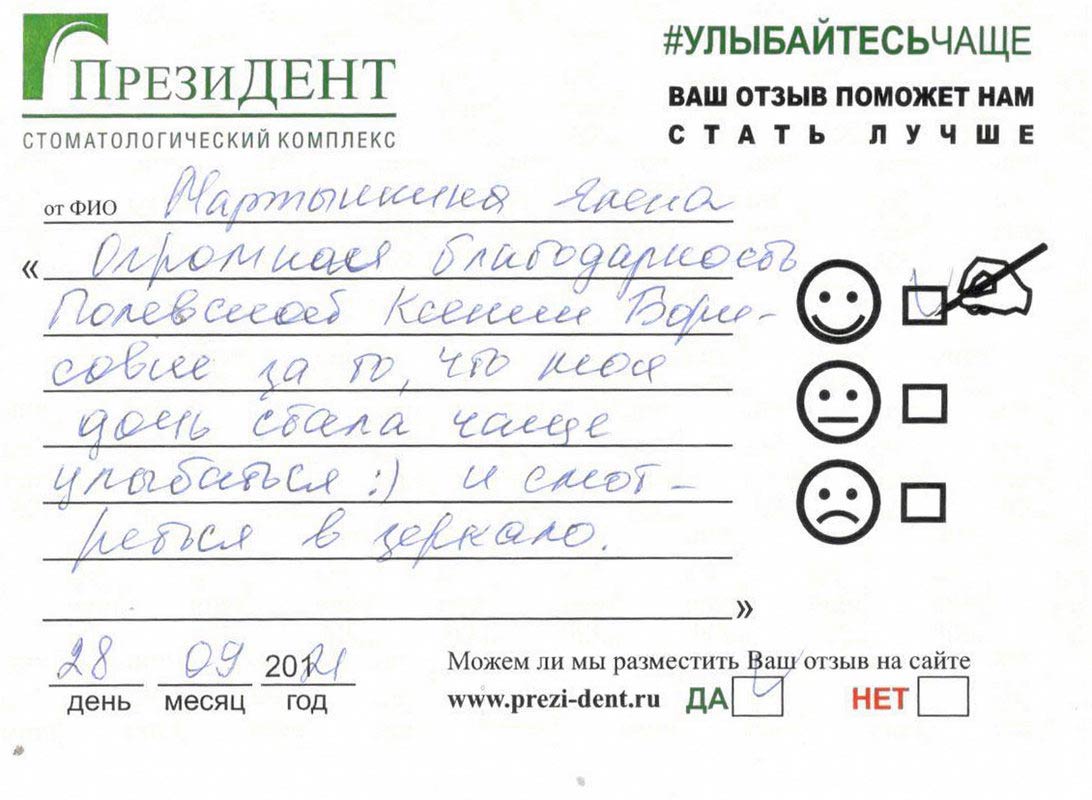 ПРЕЗИДЕНТ
СТОМАТОЛОГИЧЕСКИЙ КОМПЛЕКС
#УЛЫБАЙТЕСЬЧАЩЕ
ВАШ ОТЗЫВ ПОМОЖЕТ НАМ
СТАТЬ ЛУЧШЕ
от ФИО Мартынкина Елена
« Огромная благодарность
Полевской Ксении Бори-
совне за то, что моя
дочь стала чаще
улыбаться :) и смот-
реться в зеркало.
»
28 09 2021
день месяц год
Можем ли мы разместить Ваш отзыв на сайте
www.prezi-dent.ru ДА НЕТ